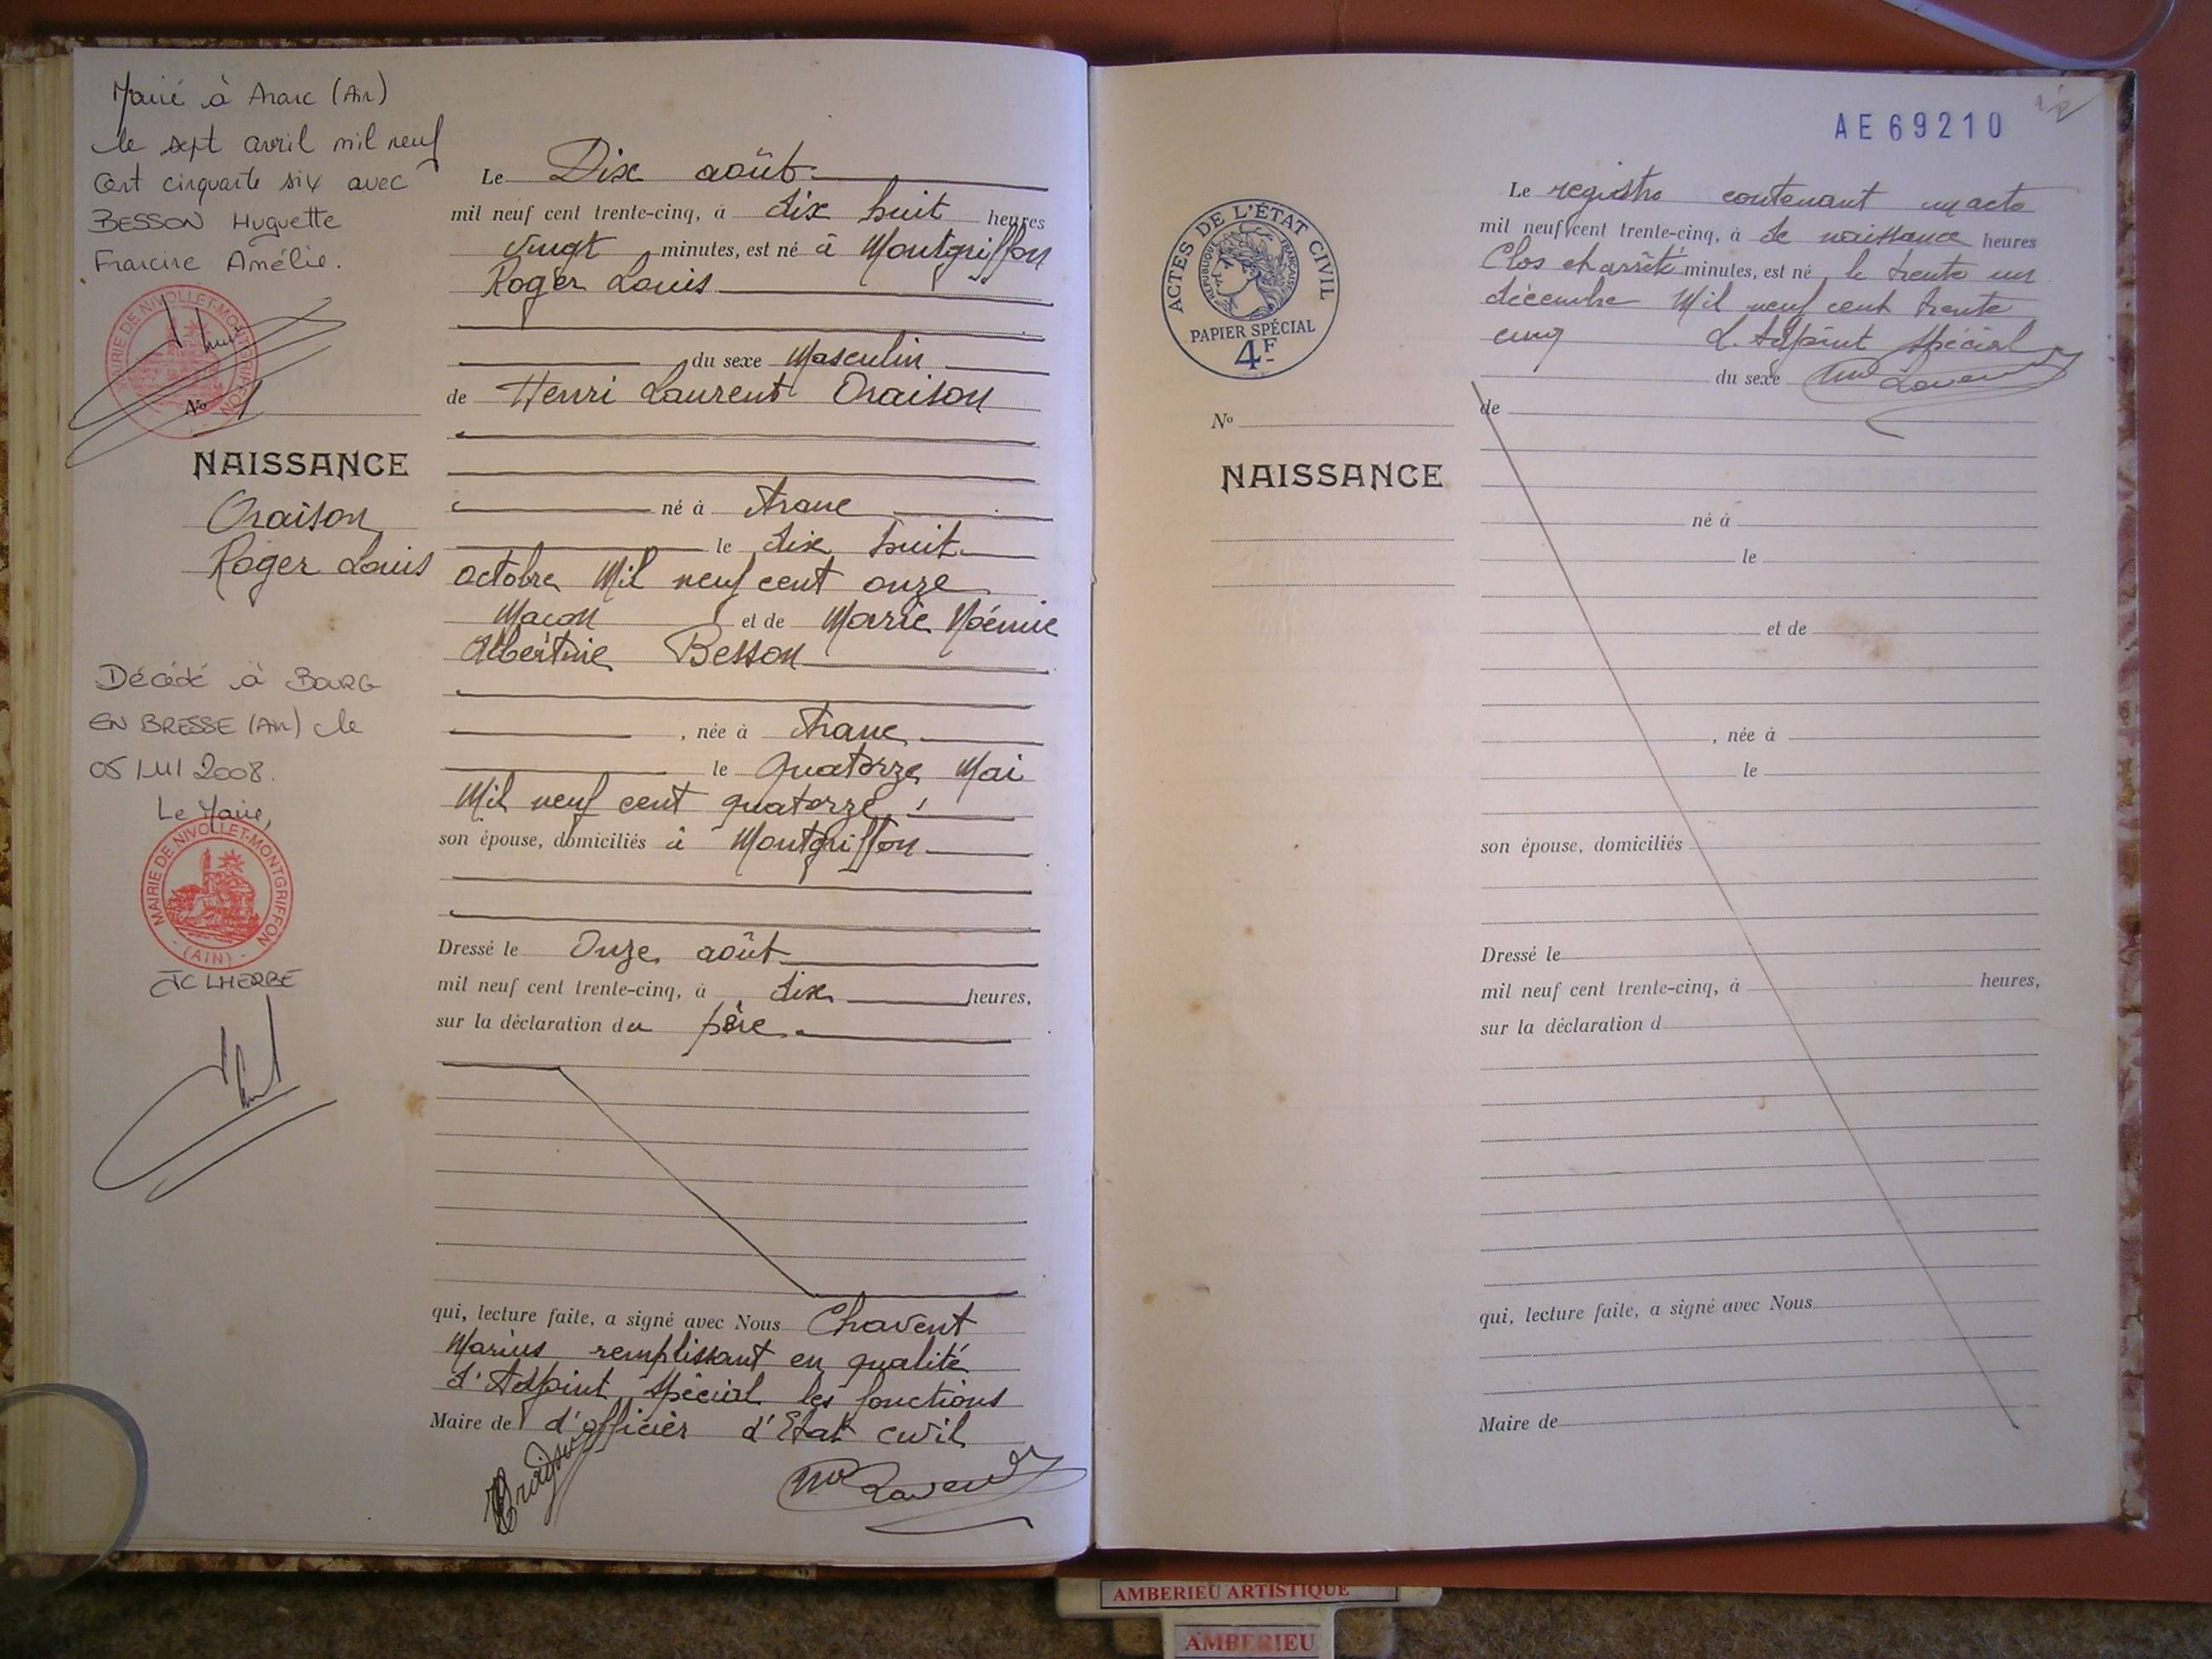 Marié à Aranc (Ain)
le sept avril mil neuf
cent cinquante six avec
BESSON Huguette
Francine Amélie.
MAIRIE DE NIVOLLET-MONTGRIFFON
No 1
NAISSANCE
Oraison
Roger Louis
Décédé à BOURG
EN BRESSE (Ain) le
05 MAI 2008.
Le Maire,
MAIRIE DE NIVOLLET-MONTGRIFFON
- (AIN) -
JC LHERBE
Le Dix août
mil neuf cent trente-cinq, à dix huit heures
vingt minutes, est né à Montgriffon
Roger Louis
du sexe Masculin
de Henri Laurent Oraison
né à Aranc
le dix huit
octobre Mil neuf cent onze
Maçon et de Marie Noémie
Albertine Besson
, née à Aranc
le Quatorze Mai
Mil neuf cent quatorze
son épouse, domiciliés à Montgriffon
Dressé le Onze août
mil neuf cent trente-cinq, à dix heures,
sur la déclaration du père
qui, lecture faite, a signé avec Nous Chavent
Marius remplissant en qualité
d'Adjoint spécial les fonctions
Maire de d'officier d'Etat civil
AE69210
ACTES DE L'ÉTAT CIVIL
RÉPUBLIQUE FRANÇAISE
PAPIER SPÉCIAL
4F
No
NAISSANCE
Le registre contenant un acte
mil neuf cent trente-cinq, à de naissance heures
Clos et arrêté minutes, est né le trente un
décembre Mil neuf cent trente
cinq L'Adjoint spécial
du sexe
de
né à
le
et de
, née à
le
son épouse, domiciliés
Dressé le
mil neuf cent trente-cinq, à heures,
sur la déclaration d
qui, lecture faite, a signé avec Nous
Maire de
AMBERIEU ARTISTIQUE
AMBERIEU